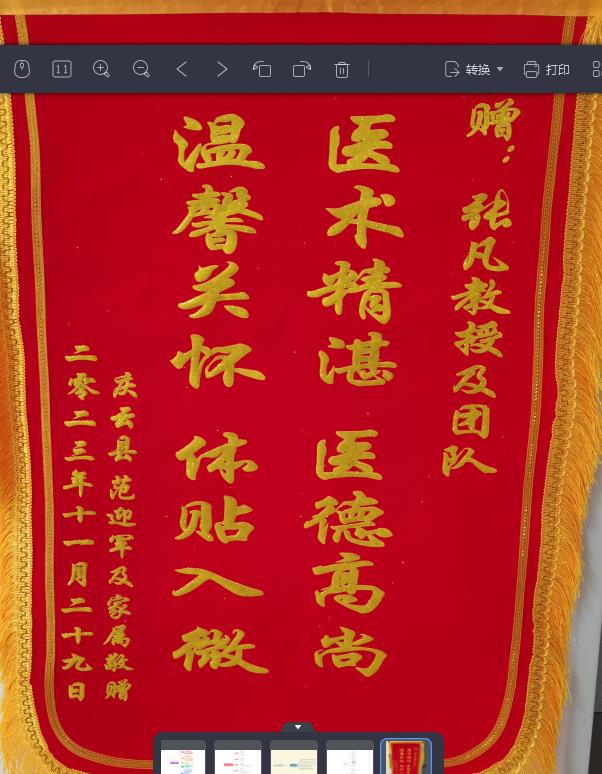 11
转换
打印
赠：
张凡教授及团队
医术精湛 医德高尚
温馨关怀 体贴入微
庆云县范迎军及家属敬赠
二零二三年十一月二十九日